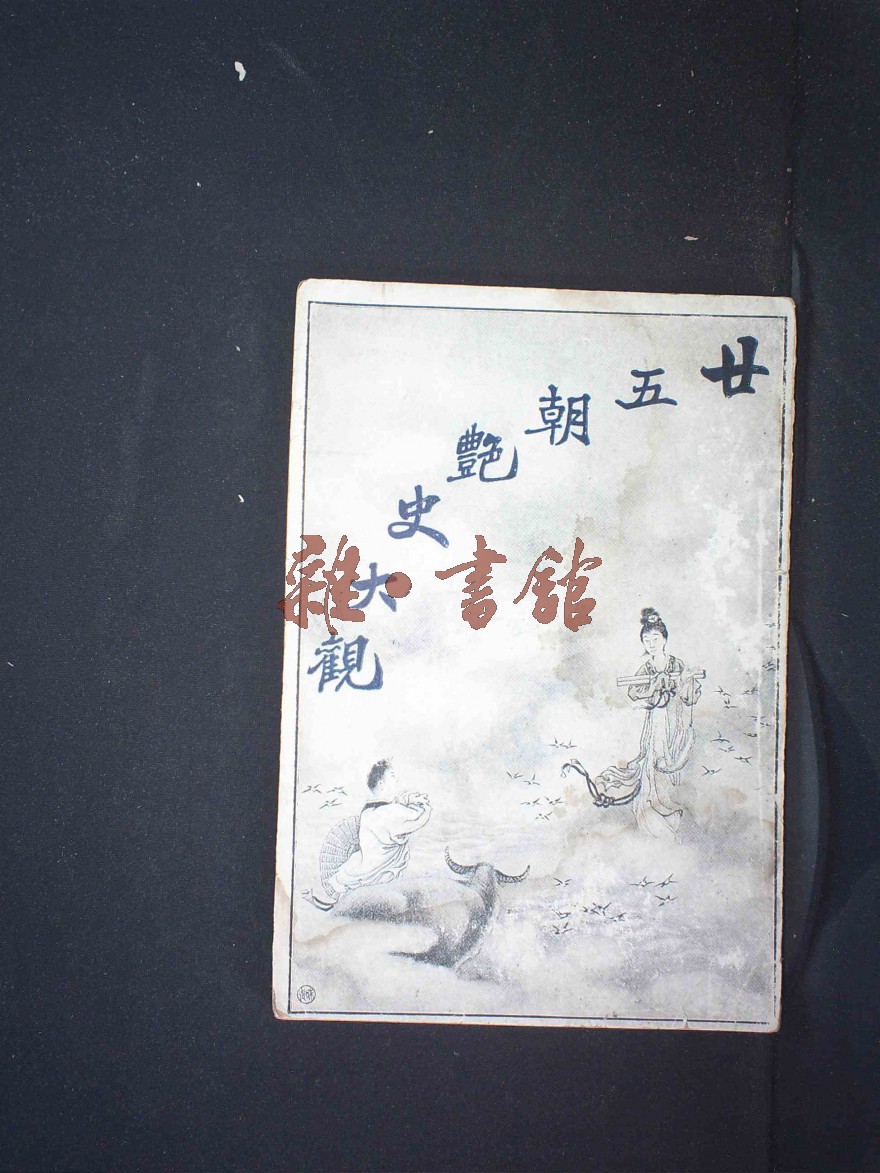 廿五朝艷史大觀
雜·書館